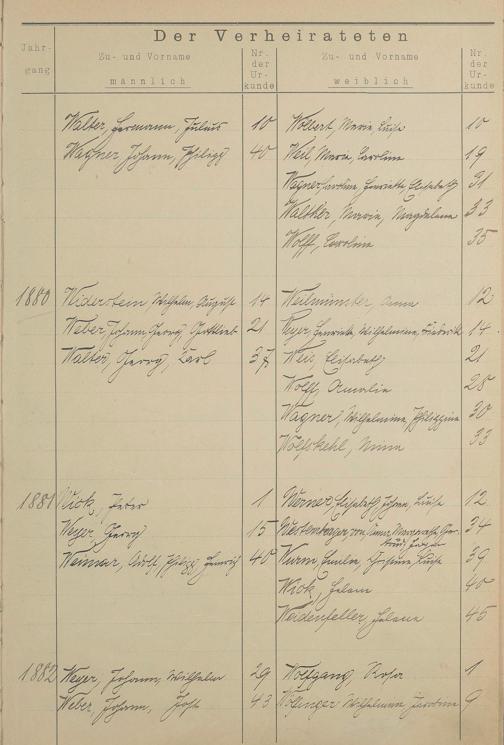 Der Verheirateten
Jahr- Zu- und Vorname Nr. Zu- und Vorname Nr.
gang männlich der weiblich der
Ur- Ur-
kunde kunde
Walter, Hermann, Julius 10 Wolbert, Marie, Luise 10
Wagner Johann, Philipp 40 Weil, Maria, Caroline 19
Wagner, Caroline, Henriette, Elisabeth 31
Walther, Maria, Magdalena 33
Wolff, Caroline 35
1880 Widerstein, Wilhelm, August 14 Weilmünster, Anna 12
Weber, Johann, Georg, Gottlieb 21 Weyer, Henriette, Wilhelmine, Friederike 14
Walter, Georg, Carl 37 Weis, Elisabeth 21
Wolff, Amalie 28
Wagner, Wilhelmine, Philippine 30
Wolfskehl, Minna 33
1881 Wick, Peter 1 Werner, Elisabeth, Johanna, Luise 12
Weyer, Georg 15 Westernhagen, von, Anna, Margarethe, 34
Weimar, Adolf, Philipp, Heinrich 40 Wurm, Emilie, Luise 39
Wick, Helene 40
Weidenfeller, Helena 45
1882 Weyer, Johann, Wilhelm 29 Wolfgang, Rosa 1
Weber, Johann, Jost 43 Wilhelmine 9